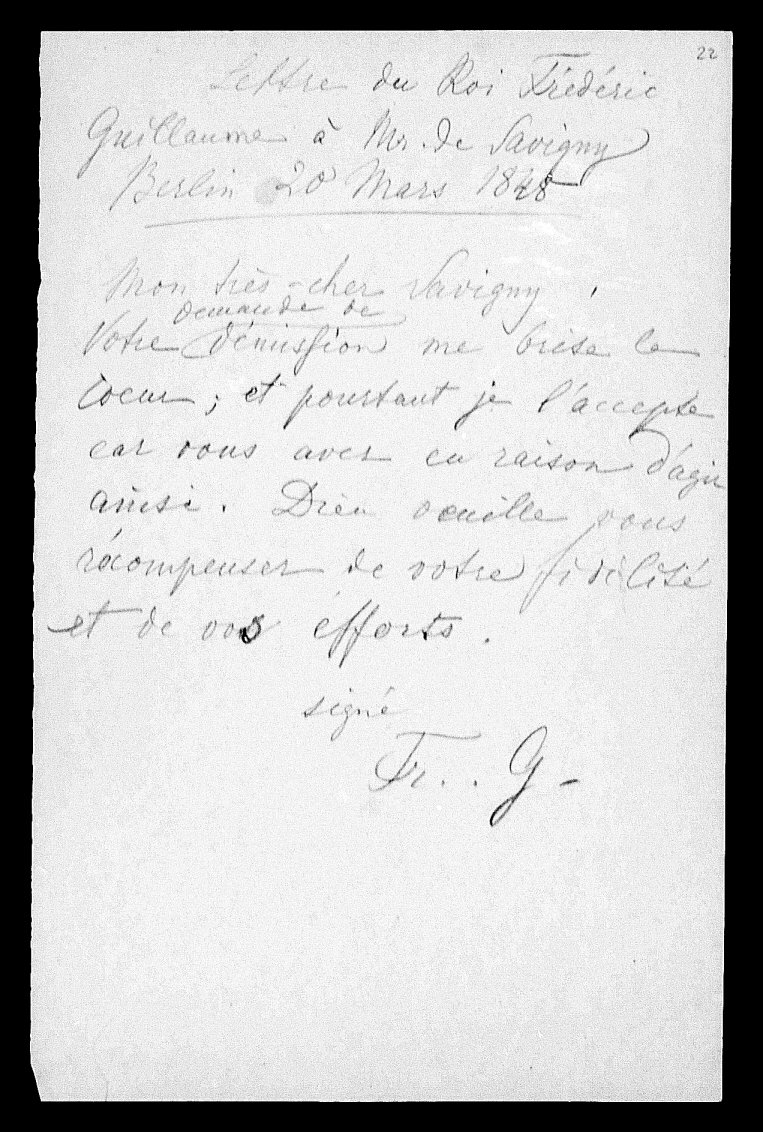 22
Lettre du Roi Frédéric
Guillaume à Mr. de Savigny
Berlin 20 Mars 1848
Mon très-cher Savigny,
demande de
Votre démission me brise le
coeur ; et pourtant je l'accepte
car vous avez eu raison d'agir
ainsi. Dieu veuille vous
récompenser de votre fidélité
et de vos éfforts.
signé
Fr. . G -